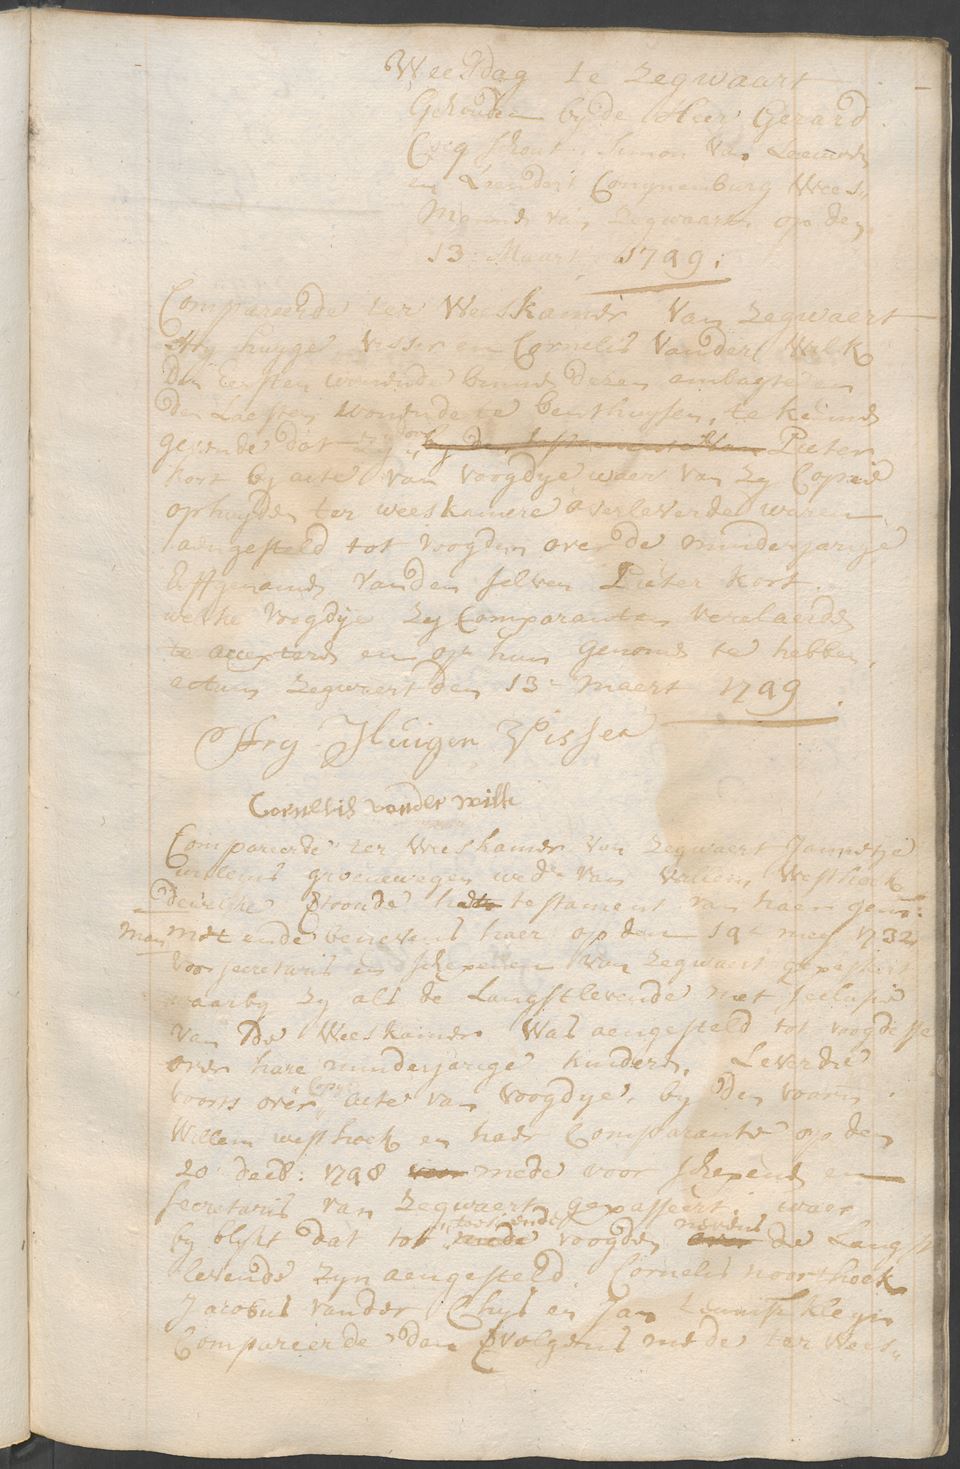 Weesdag te Zegwaart
Gehouden by de Heer Gerard
Cocq Schout, Simon van Leeuwen
en Leendert Conynenburg Wees„
Mannen van Zegwaart op den
13 Maart 1749:
Compareerde ter Weeskamer van Zegwaert
Ary huyge visser en Cornelis vander Wilk
den Eersten wonende binnen dezen ambagte en
den Laesten wonende te Benthuysen, te kennen
gevende dat zy door by de testamente van Pieter
Kort by acte van voogdye waer van zy Copie
ophuyden ter weeskamere overleverde waren
aengesteld tot voogden over de minderjarige
Erffgenamen vanden selven Pieter Kort.
welke voogdye zy Comparanten verclaerde
te accepteren en op hun genomen te hebben,
actum Zegwaert den 13e maert 1749.
Ary Huigen Visser
Cornelis vander wilk
Compareerde ter Weeskamer van Zegwaert Jannetje
willems groenewegen wede van Willem Westhoek
dewelke Toonde het testament van haer gem:
man met ende benevens haer op den 19e mey 1732
voor secretaris en schepenen van Zegwaert gepasseert
waarby zy als de Langstlevende met seclusie
van de Weeskamer was aengesteld tot voogdesse
over hare minderjarige kinderen, Leverde
voorts over Copie acte van voogdye, by den voorn.
Willem westhoek en haer Comparante op den
20 decb: 1748 voor mede voor schepenen en
secretaris van Zegwaert gepasseert: waer
by blykt dat tot toesiende mede voogden nevens over de Langst
levende zyn aengesteld Cornelis noorthoek
Jacobus vander Chys en Jan kleyn
Compareerde dan vervolgens mede ter Wees„